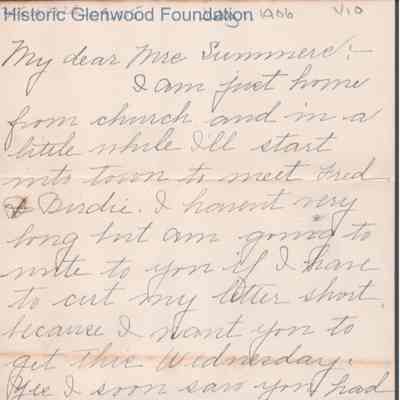 Historic Glenwood Foundation
1906 V10
My dear Mrs Summers:-
I am just home
from church and in a
little while I'll start
into town to meet Fred
& Birdie. I havent very
long but am going to
write to you if I have
to cut my letter short,
because I want you to
get this Wednesday.
Yes I soon saw you had